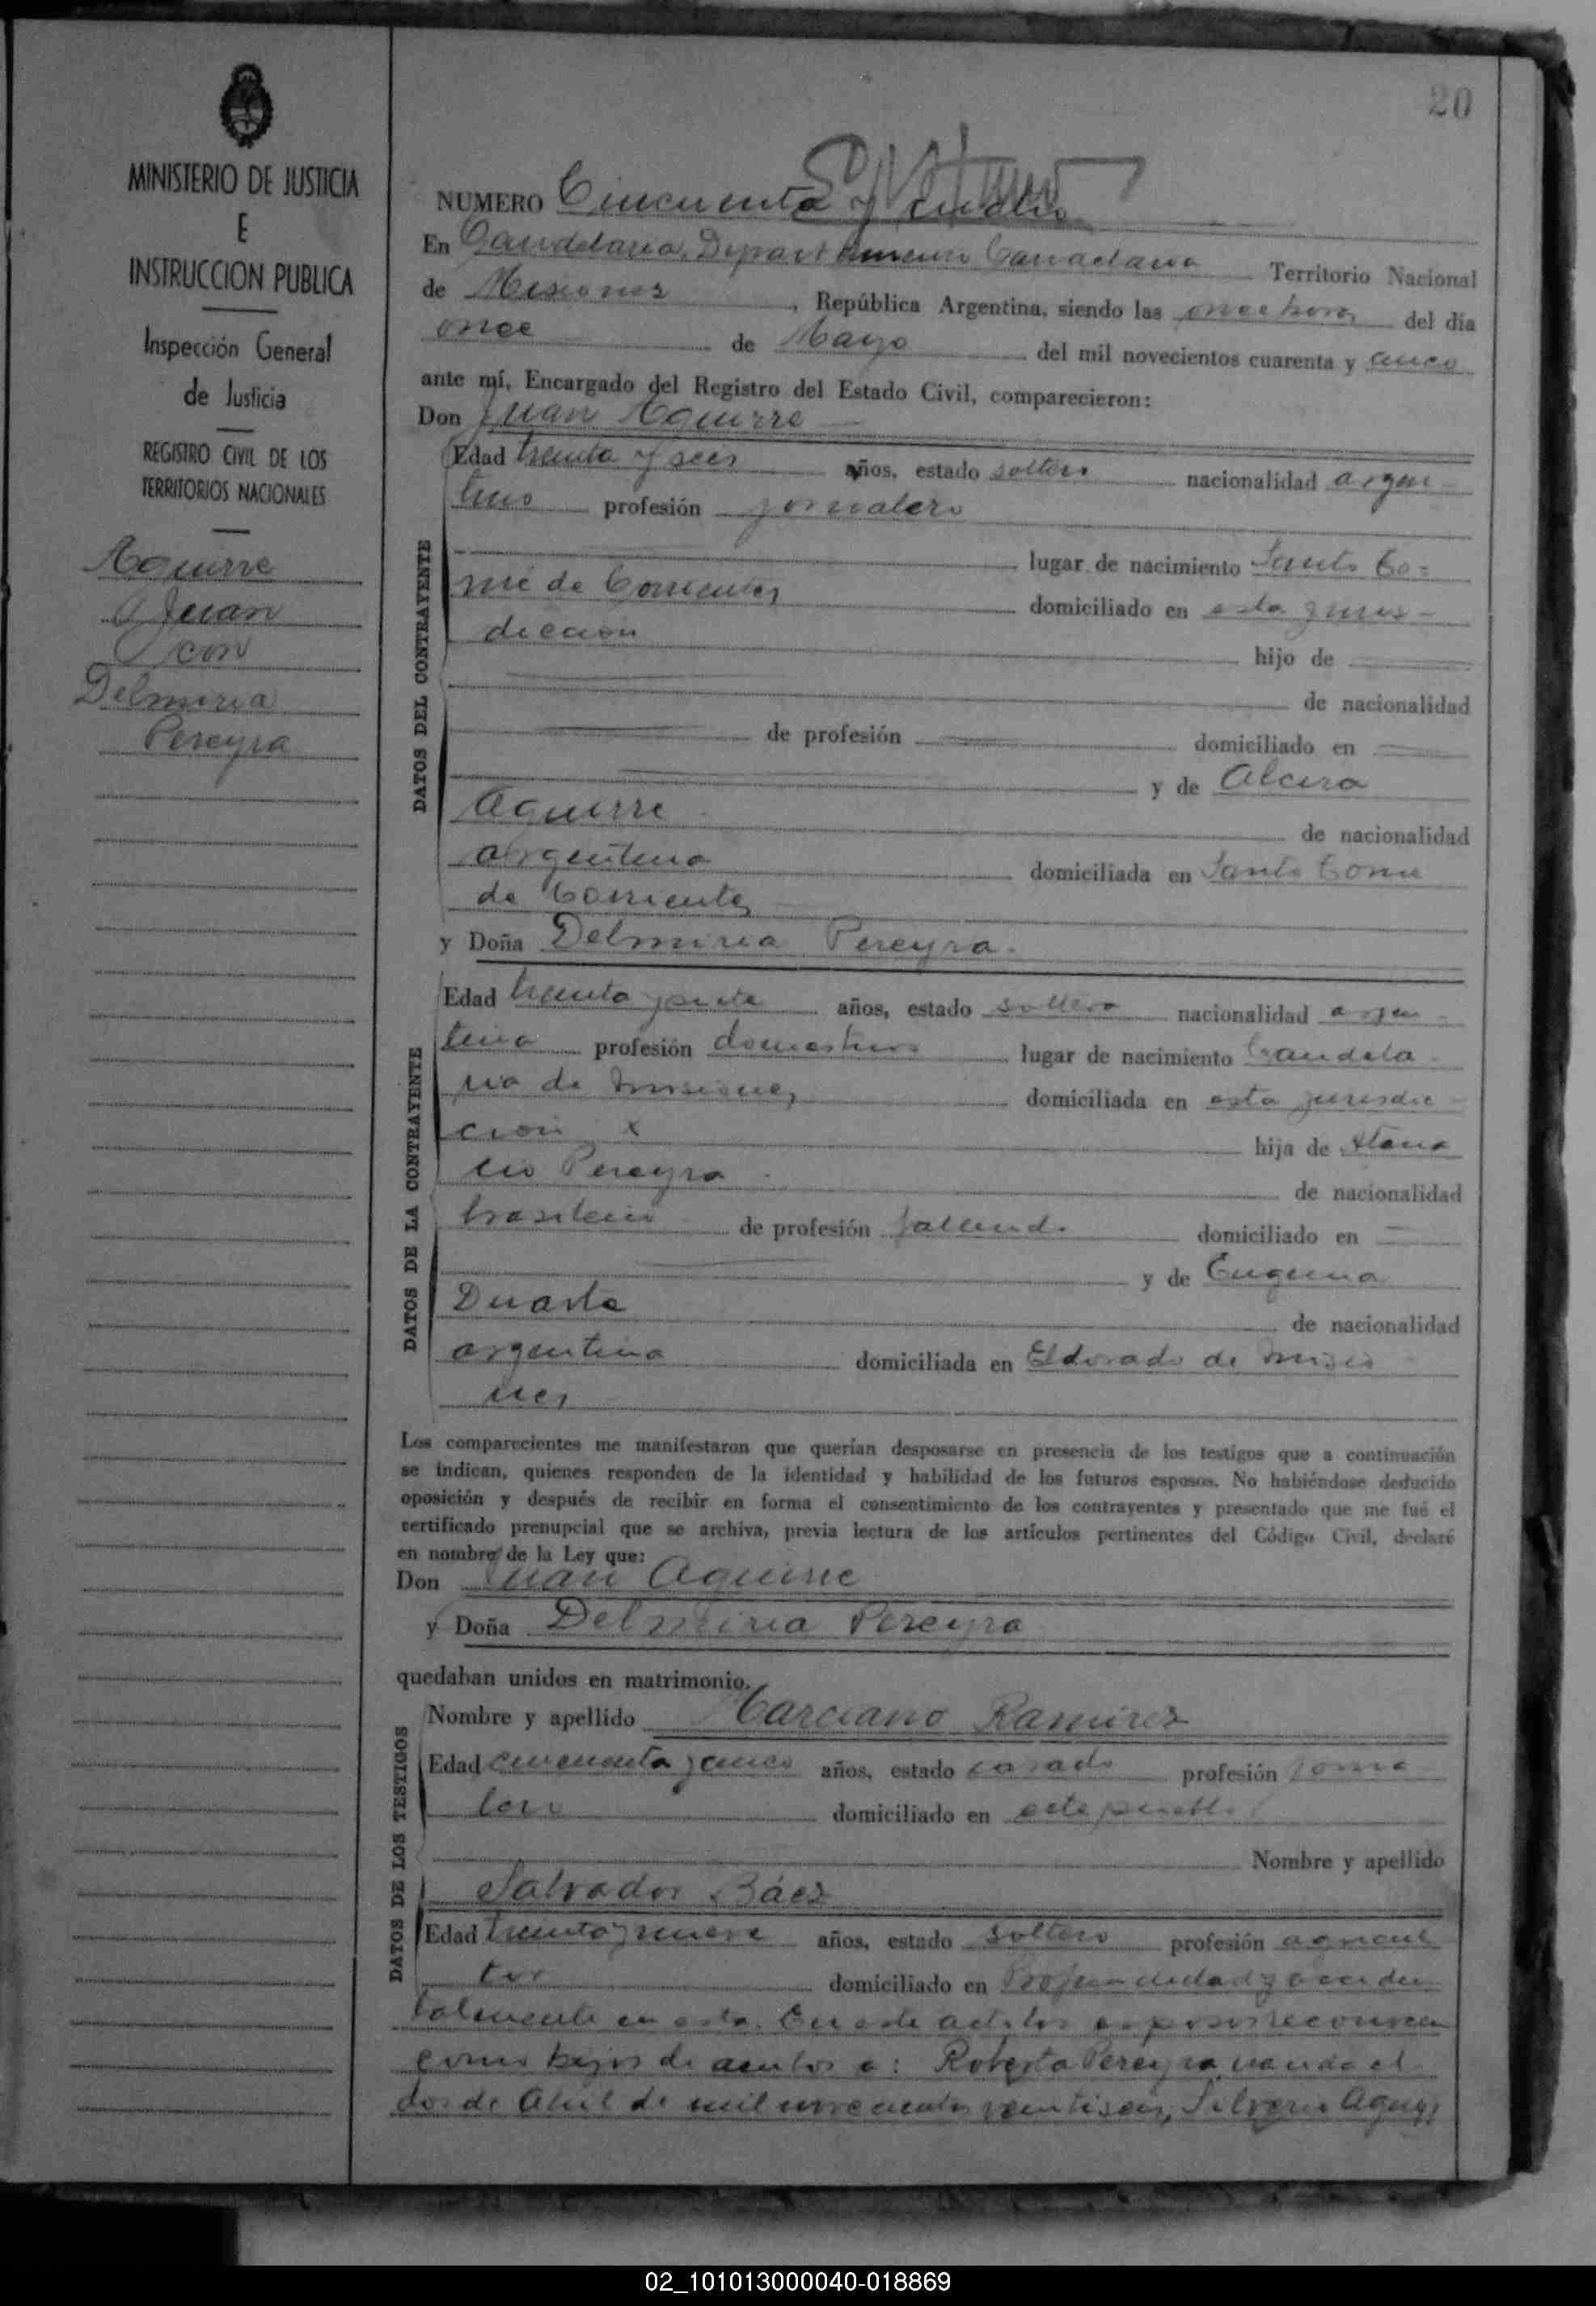 20
MINISTERIO DE JUSTICIA
E
INSTRUCCION PUBLICA
Inspección General
de Justicia
REGISTRO CIVIL DE LOS
TERRITORIOS NACIONALES
Aguirre
Juan
con
Delmiria
Pereyra
NUMERO Cincuenta y
En Candelaria, Departamento Candelaria Territorio Nacional
de Misiones, República Argentina, siendo las once horas del día
once de Mayo del mil novecientos cuarenta y cinco
ante mí, Encargado del Registro del Estado Civil, comparecieron:
Don Juan Aguirre
DATOS DEL CONTRAYENTE
Edad treinta y seis años, estado soltero nacionalidad argen
tino profesión jornalero
lugar de nacimiento Santo To=
mé de Corrientes domiciliado en esta juris-
diccion
hijo de
de nacionalidad
de profesión domiciliado en
y de Alcira
Aguirre
de nacionalidad
argentina domiciliada en Santo Tome
de Corrientes
y Doña Delmiria Pereyra.
DATOS DE LA CONTRAYENTE
Edad treinta y siete años, estado soltera nacionalidad argen
tina profesión domestica lugar de nacimiento Candela
ria de Misiones domiciliada en esta jurisdic
cion x hija de Atana
cio Pereyra de nacionalidad
brasilero de profesión fallecido domiciliado en
y de Eugenia
Duarte
de nacionalidad
argentina domiciliada en Eldorado de Misio
nes
Los comparecientes me manifestaron que querían desposarse en presencia de los testigos que a continuación
se indican, quienes responden de la identidad y habilidad de los futuros esposos. No habiéndose deducido
oposición y después de recibir en forma el consentimiento de los contrayentes y presentado que me fué el
certificado prenupcial que se archiva, previa lectura de los artículos pertinentes del Código Civil, declaré
en nombre de la Ley que:
Don Juan Aguirre
y Doña Delmiria Pereyra
quedaban unidos en matrimonio.
DATOS DE LOS TESTIGOS
Nombre y apellido Marciano Ramirez
Edad cincuenta y cinco años, estado casado profesión jorna
lero domiciliado en este pueblo
Nombre y apellido
Salvador Báez
Edad treinta y nueve años, estado soltero profesión agricul
tor domiciliado en Profundidad y acciden
talmente en esta. En este acto los esposos reconocen
como hijos de ambos a: Roberta Pereyra nacida el
dos de Abril de mil novecientos veintiseis, Silverio
02_101013000040-018869